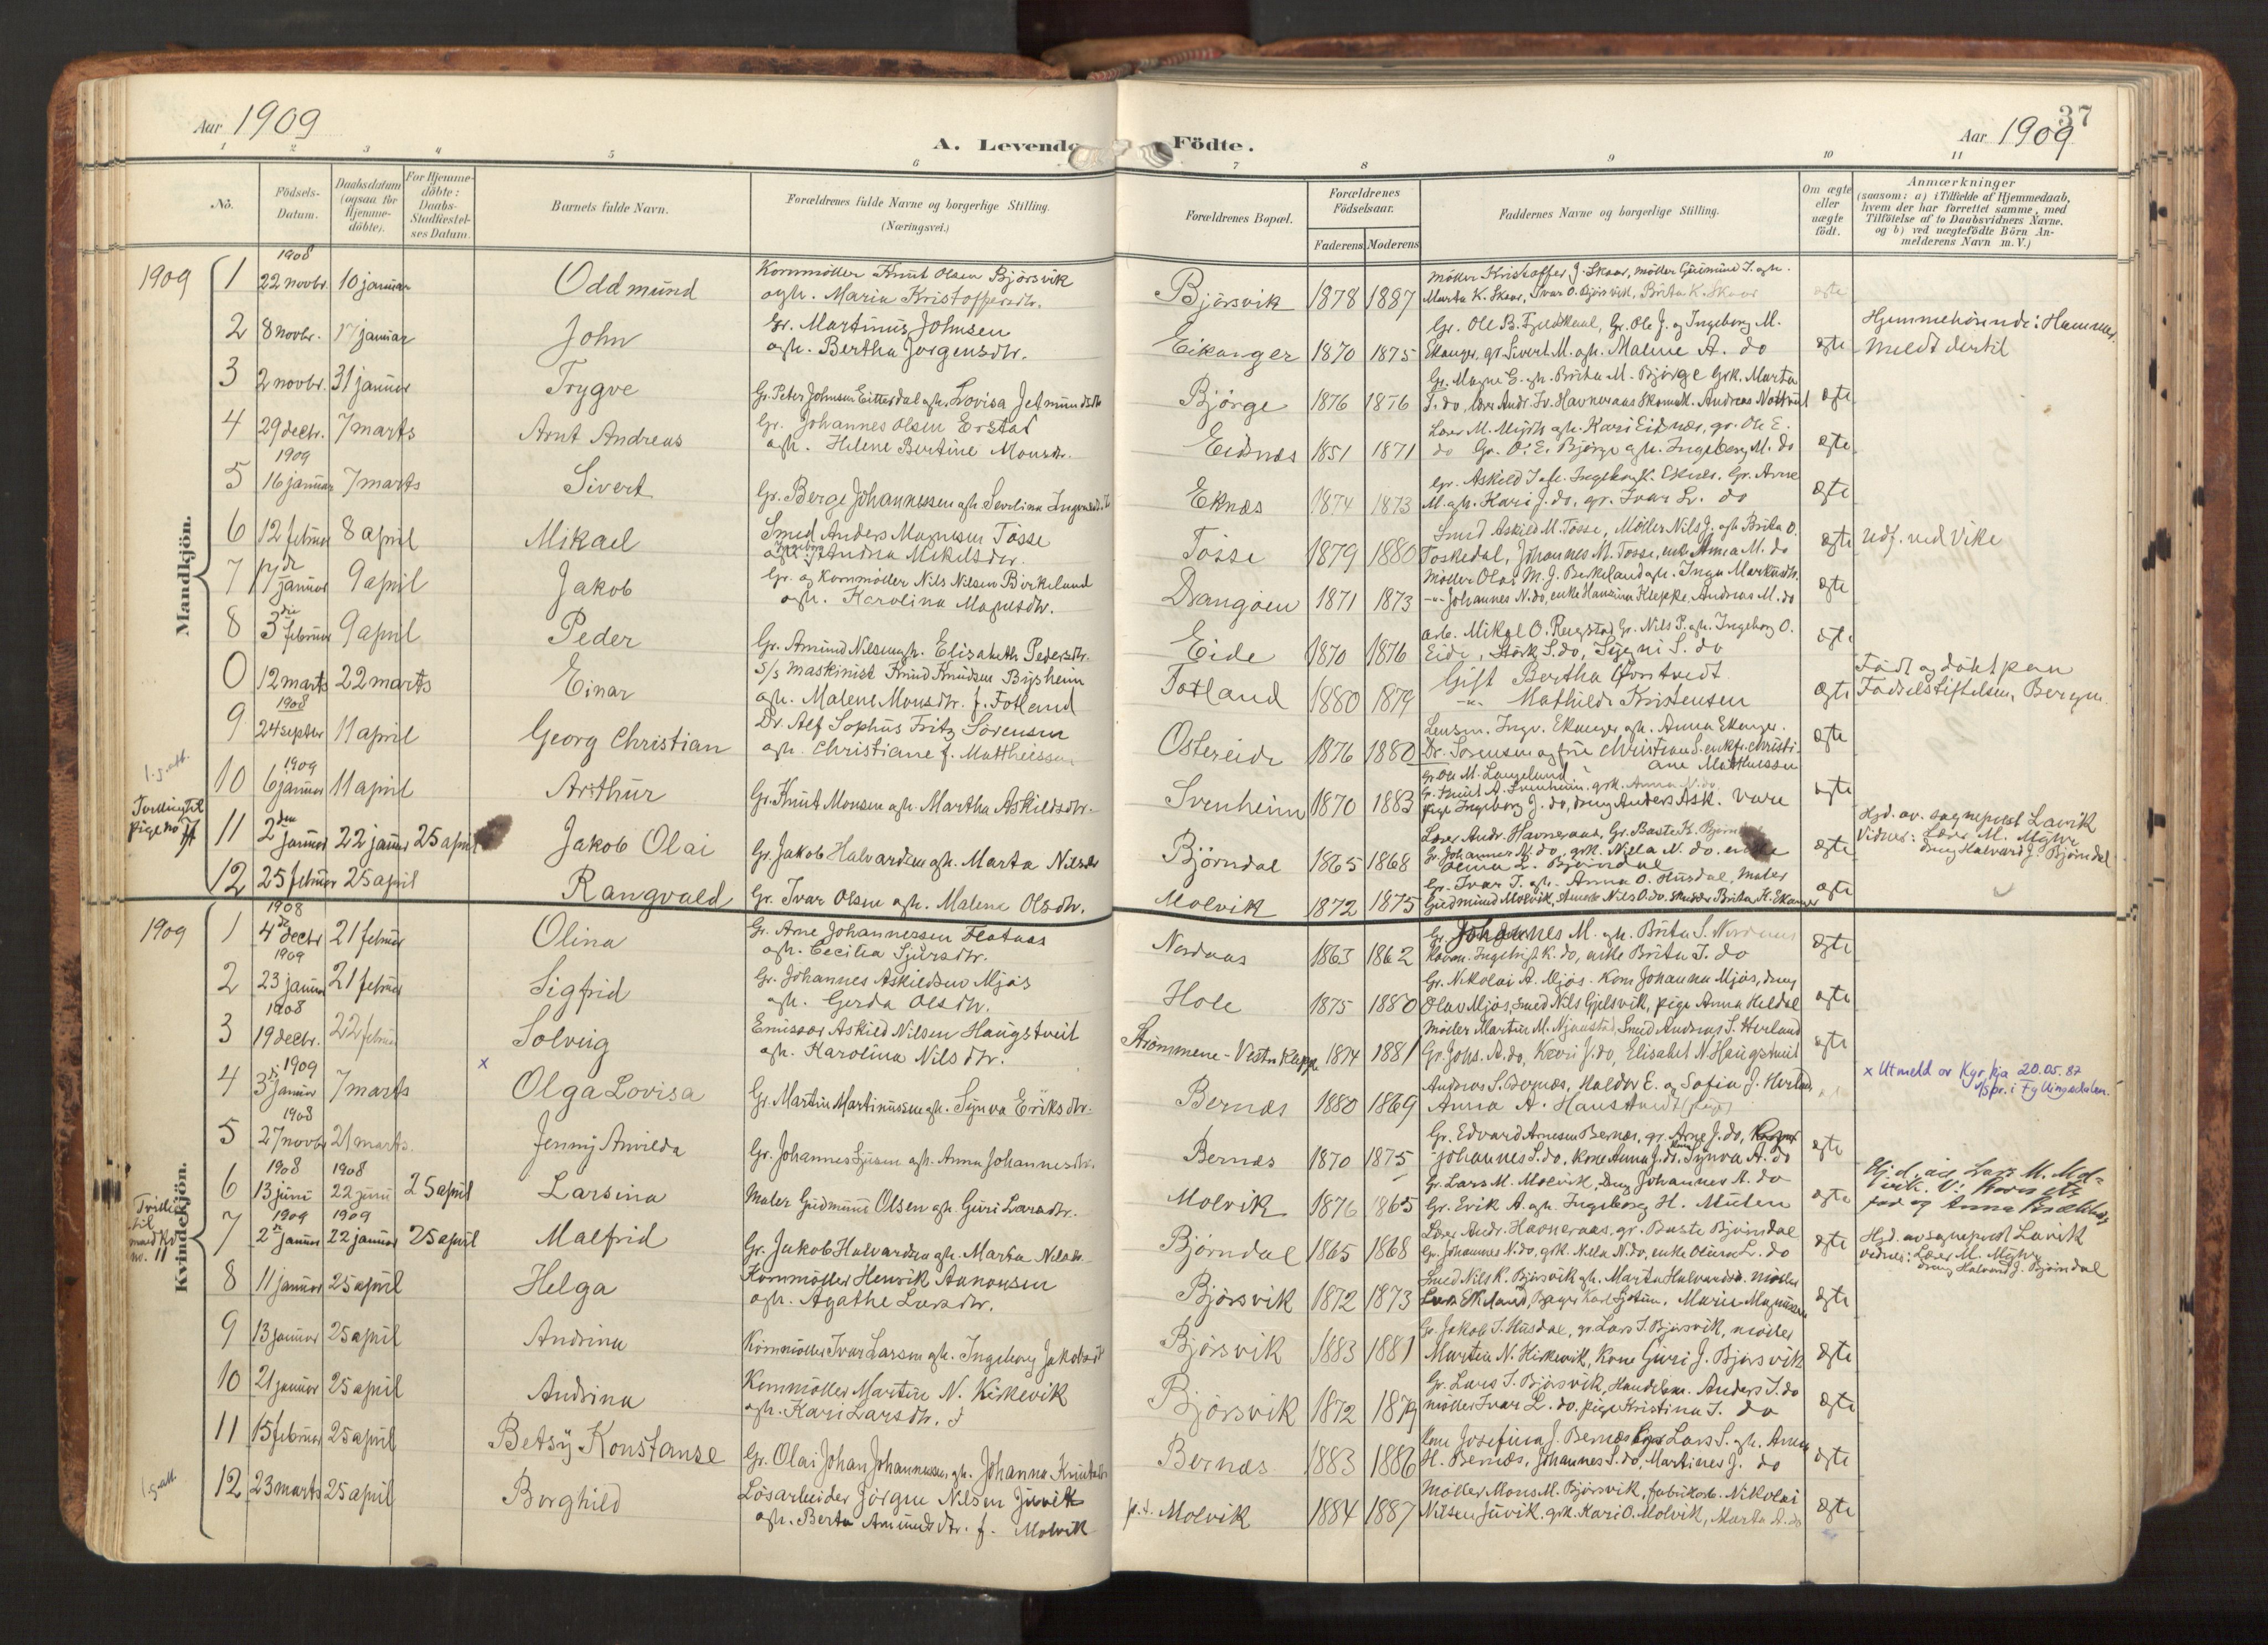 Aar 1909
A. Levende Födte.
37
Aar 1909
1 2 3 4 5 6 7 8 9 10 11
Nô.
Födsels-Datum.
Daabsdatum (ogsaa for Hjemme-döbte).
For Hjemme-döbte: Daabs-Stadfæstel-ses Datum.
Barnets fulde Navn.
Forældrenes fulde Navne og borgerlige Stilling. (Næringsvei.)
Forældrenes Bopæl.
Forældrenes Födselsaar.
Faderens Moderens
Faddernes Navne og borgerlige Stilling.
Om ægte eller uægte födt.
Anmærkninger (saasom: a) i Tilfælde af Hjemmedaab, hvem der har forrettet samme, med Tilföielse af to Daabsvidners Navne. og b) ved uægtefödte Börn An-melderens Navn m. V.)
Mandkjön.
1909 1 1908 22 novbr. 10 januar Oddmund Kornmöller Knut Olsen Björsvik
agh. Maria Kristoffersdtr. Björsvik 1878 1887 Möller Kristoffer J. Skaar, möller
Marta K. Skaar, Ivar O. Björsvik, Brita K. Skaar
2 8 novbr. 17 januar John Gr. Martinus Johnsen
agh. Bertha Jorgensdtr. Eikanger 1870 1875 Gr. Ole B. Gr. Ole J. og Ingeborg M.
Ekanger, gr. Sivert M. agh. Malene A. do ægte Hjemmehörende i Hammer.
Meldt dertil
3 2 novbr. 31 januar Trygve Gr. Peter Johnsen agh. Lovisa Björge 1876 1876 Gr. Magne E. agh. Brita M. Björge Grk. Marta
J. do, Andr. Havneraas Andreas ægte
4 29 decbr. 7 marts Arnt Andreas Gr. Johannes Olsen Erstad
agh. Helene Bertine Monsdtr. Eidnæs 1851 1871 Lærer M. Mjös agh. Kari Eidnæs, gr. Ole E.
do Gr. O. E. Björge agh. Ingeborg M. do ægte
5 1909 16 januar 7 marts Sivert Gr. Berge Johannessen agh. Eknæs 1874 1873 Gr. Askild J. agh. Ingeborg K. Eknes. Gr. Arne
M. agh. Kari J. do, gr. Ivar L. do ægte
6 12 februar 8 april Mikael Smed Anders Magnesen Tösse
agh. Andrea Mikelsdtr. Tösse 1879 1880 Smed Askild M. Tösse, Möller Nils J. agh. Brita O.
Toskedal, Johannes M. Tosse, enke Anna M. do ægte Udf. ved Vike
7 januar 9 april Jakob Gr. og Kornmöller Nils Nilsen Birkeland
agh. Karolina Magnesdtr. Drangöen 1871 1873 Möller Olas M. J. Berkeland agh. Inga
Johannes N. do, enke Kleppe, Andreas M. do ægte
8 3die februar 9 april Peder Gr. Amund Nilsen agh. Elisabeth Pedersdtr. Eide 1870 1876 arb. Mikal O. Gr. Nils P. agh. Ingeborg O.
Eide, Störk S. do, Sygni S. do ægte
0 12 marts 22 marts Einar S/s Maskinist Knud Knudsen Bysheim
agh. Malene Monsdtr. f. Fotland Fotland 1880 1879 Gift Bertha
Mathilde Kristensen ægte Födt og döbt paa
Födselsstiftelsen, Bergen.
9 1908 24 septbr 11 april Georg Christian Dr. Alf Sophus Fritz Sörensen
agh. Christiane f. Matthiessen Östereide 1876 1880 Lensm. Ingv. Ekanger agh. Anna Ekanger.
Dr. Sorensen og frue Christiane S. enkefr. Christi-
ane Matthiessen ægte
10 1909 6 januar 11 april Arthur Gr. Knut Monsen agh. Martha Askildsdtr. Svenheim 1870 1883 gr. Ole M. Langeland
Gr. Knut A. Svenheim, grk. Anna N. do
pige Ingeborg J. do, dreng Anders Ask. Vare ægte
Tvilling til pige no 7 11 2den januar 22 januar 25 april Jakob Olai Gr. Jakob Halvardsen agh. Marta Nilsdtr Björndal 1865 1868 Lærer Andr. Havneraas, Gr. Baste K. Björndal
Gr. Johannes N. do, grk. Nilla N. do. enke
Olina L. Björndal ægte Hjd. av sogneprest Lavik
Vidner: Lærer M. Mjös
dreng Halvard J. Björndal
12 25 februar 25 april Rangvald Gr. Ivar Olsen agh. Malena Olsdtr. Molvik 1872 1875 Gr. Ivar T. agh. Anna O. Husdal, Maler
Gudmund Molvik, Nils O. do. Brita K. Ekanger ægte
Kvindekjön.
1909 1 1908 4de decbr 21 februar Olina Gr. Arne Johannessen Flataas
agh. Cecilia Sjursdtr. Nordaas 1863 1862 Gr. Johannes M. agh. Brita S. Nordaas
Ingebrigt K. do, enke Brita J. do ægte
2 1909 23 januar 21 februar Sigfrid Gr. Johannes Askildsen Mjös
agh. Gerda Olsdtr. Hole 1875 1880 Gr. Nikolai A. Mjös. Kone Johanna Mjös, dreng
Olav Mjös, smed Nils Gjelsvik, pige Anna Keldal ægte
3 1908 19 decbr. 22 februar Solveig Emissær Askild Nilsen Haugstveit
agh. Karolina Nilsdtr. Strömmene - Vestre Kleppe 1874 1881 Möller Martin M. Njaastad, Smed Andreas S. Herland
Gr. Johs. A. do, Kari J. do, Elisabet N. Haugstveit ægte
4 1909 3die januar 7 marts x Olga Lovisa Gr. Martin Martinussen agh. Synva Eriksdtr. Bernæs 1880 1869 Andreas S. Bernæs, Haldor E. og Sofia J. Herland,
Anna A. (pige) x Utmeld av Kyrkja 20.05.87
v/spr. i Fyllingsdalen.
5 1908 27 novbr 21 marts. Jenny Anvilda Gr. Johannes agh. Anna Johannesdtr. Bernæs 1870 1875 Gr. Edvard Arnesen Bernæs, gr. Arne J. do,
Johannes S. do, kone Anna J. do. Synva A. do ægte
6 1908 13 juni 1908 22 juni 25 april Larsina Maler Gudmund Olsen agh. Guri Larsdtr. Molvik 1876 1865 Gr. Lars M. Molvik, Dreng Johannes A. do
Gr. Erik A. agh. Ingeborg H. Mulen ægte Hj.d. av Lars M. Mol-
vik. V:
Tvilling til mandkj no. 11 7 1909 2den januar 1909 22 januar 25 april Malfrid Gr. Jakob Halvardsen agh. Marta Nilsdtr. Björndal 1865 1868 Lærer Andr. Havneraas, gr. Baste Björndal
Gr. Johannes N. do, grk. Nilla N. do, enke Olina L. do ægte Hjd. av sogneprest Lavik
vidner: Lærer M. Mjös
dreng Halvard J. Björndal
8 11 januar 25 april Helga Kornmöller Henrik Aanonsen
agh. Agathe Larsdtr. Björsvik 1872 1873 Smed Nils K. Björsvik agh. Marta Halvardsd. möller
Lars Ekeland, Bager Karl Marie Magnussen ægte
9 13 januar 25 april Andrina Kornmöller Ivar Larsen agh. Ingeborg Jakobsdtr Björsvik 1883 1881 Gr. Jakob I. Husdal, gr. Lars I. Björsvik, möller
Martin N. Kirkevik, Kone Guri J. Björsvik ægte
10 21 januar 25 april Andrina Kornmöller Martin N. Kirkevik
agh. Kari Larsdtr. Björsvik 1872 1879 Gr. Lars I. Björsvik, Handelsm. Anders I. do
möller Ivar L. do, pige Kristina I. do ægte
11 15 februar 25 april Betsy Konstanse Gr. Olai Johan Johannessen agh. Johanna Knutsdtr Bernæs 1883 1886 Kone Josefina J. Bernæs Lars S. agh. Anna
H. Bernæs, Johannes S. do, Martines J. do ægte
12 23 marts 25 april Borghild Lösarbeider Jörgen Nilsen Juvik
agh. Berta Amundsdtr. f. Molvik p.t. Molvik 1884 1887 Möller Mons M. Björsvik, fabrikarb. Nikolai
Nilsen Juvik. grk. Kari O. Molvik, Marta A. do ægte